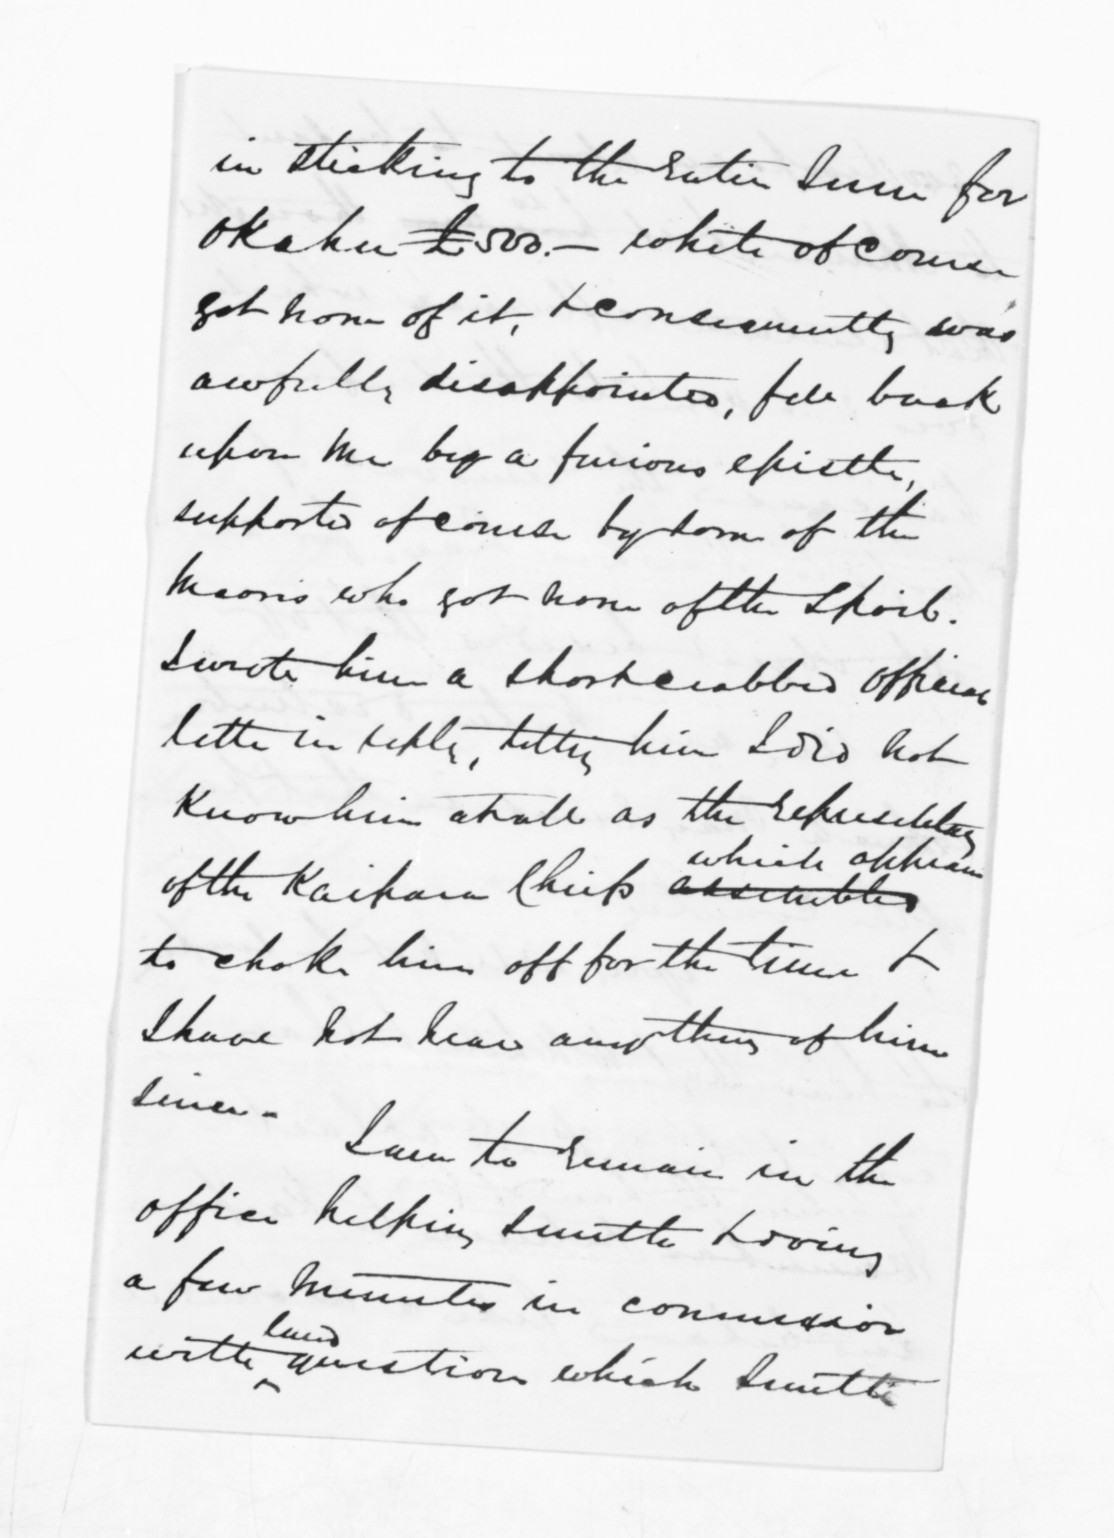 in sticking to the entire sum for
Okahu £500. — White of course
got none of it, & consequently was
awfully disappointed, fell back
upon me by a furious epistle,
supported of course by some of the
Maoris who got none of the spoil.
I wrote him a short crabbed official
letter in reply, telling him I did not
know him at all as the representative
of the Kaipara Chiefs ~~assembled~~ which appears
to choke him off for the time &
I have not heard anything of him
since. -
I am to remain in the
office helping Smith & doing
a few minutes in connexion
with land question which Smith